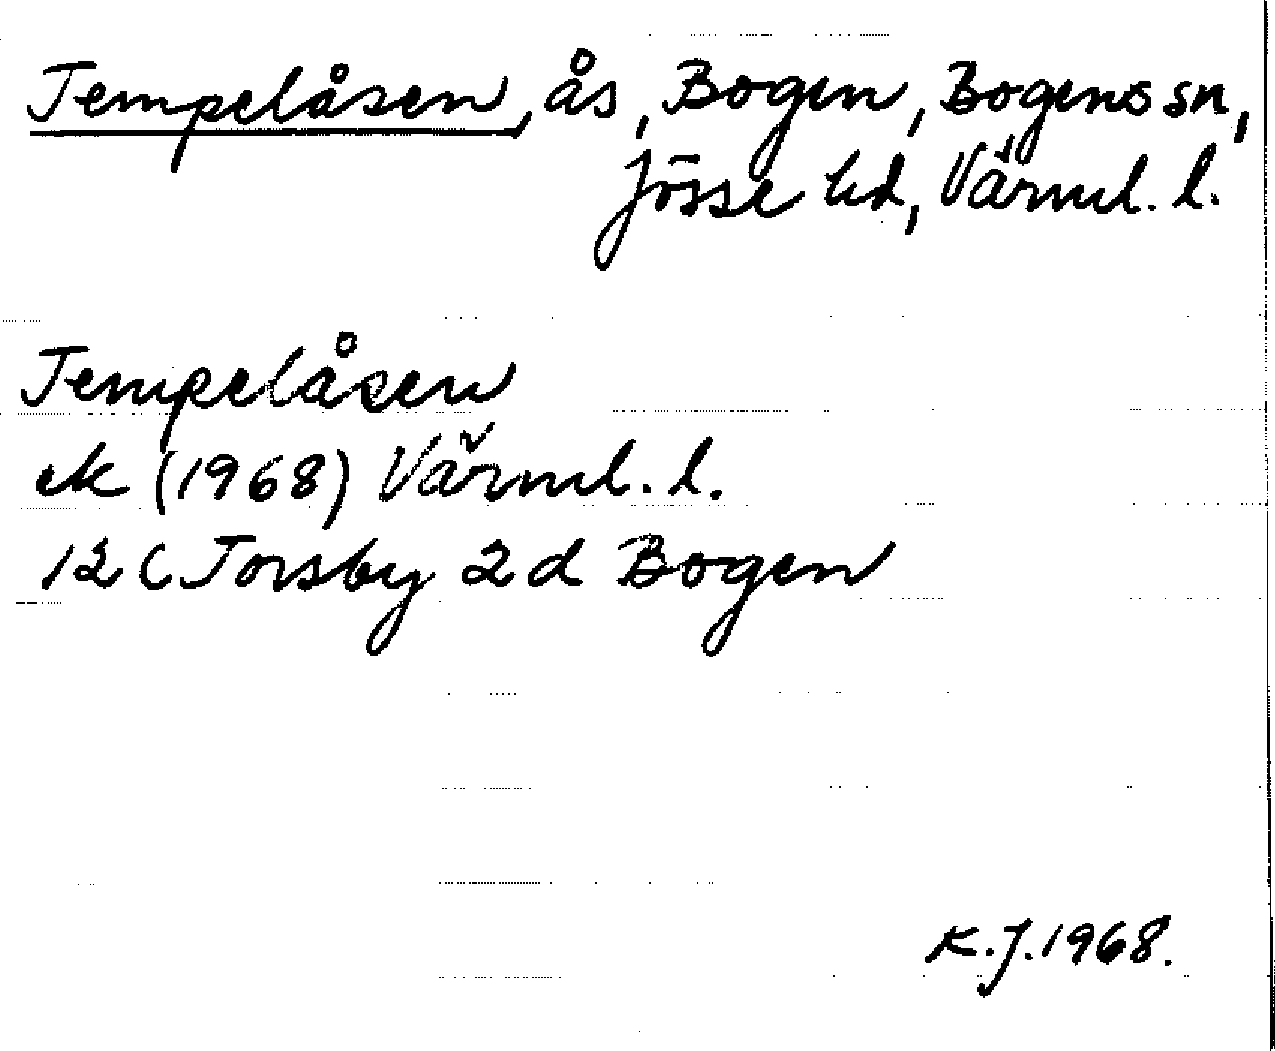 Tempelåsen, ås, Bogen, Bogens sn,
Jösse hd, Värml. l.
Tempelåsen
ek (1968) Värml. l.
12 C Torsby 2 d Bogen
K.J. 1968.